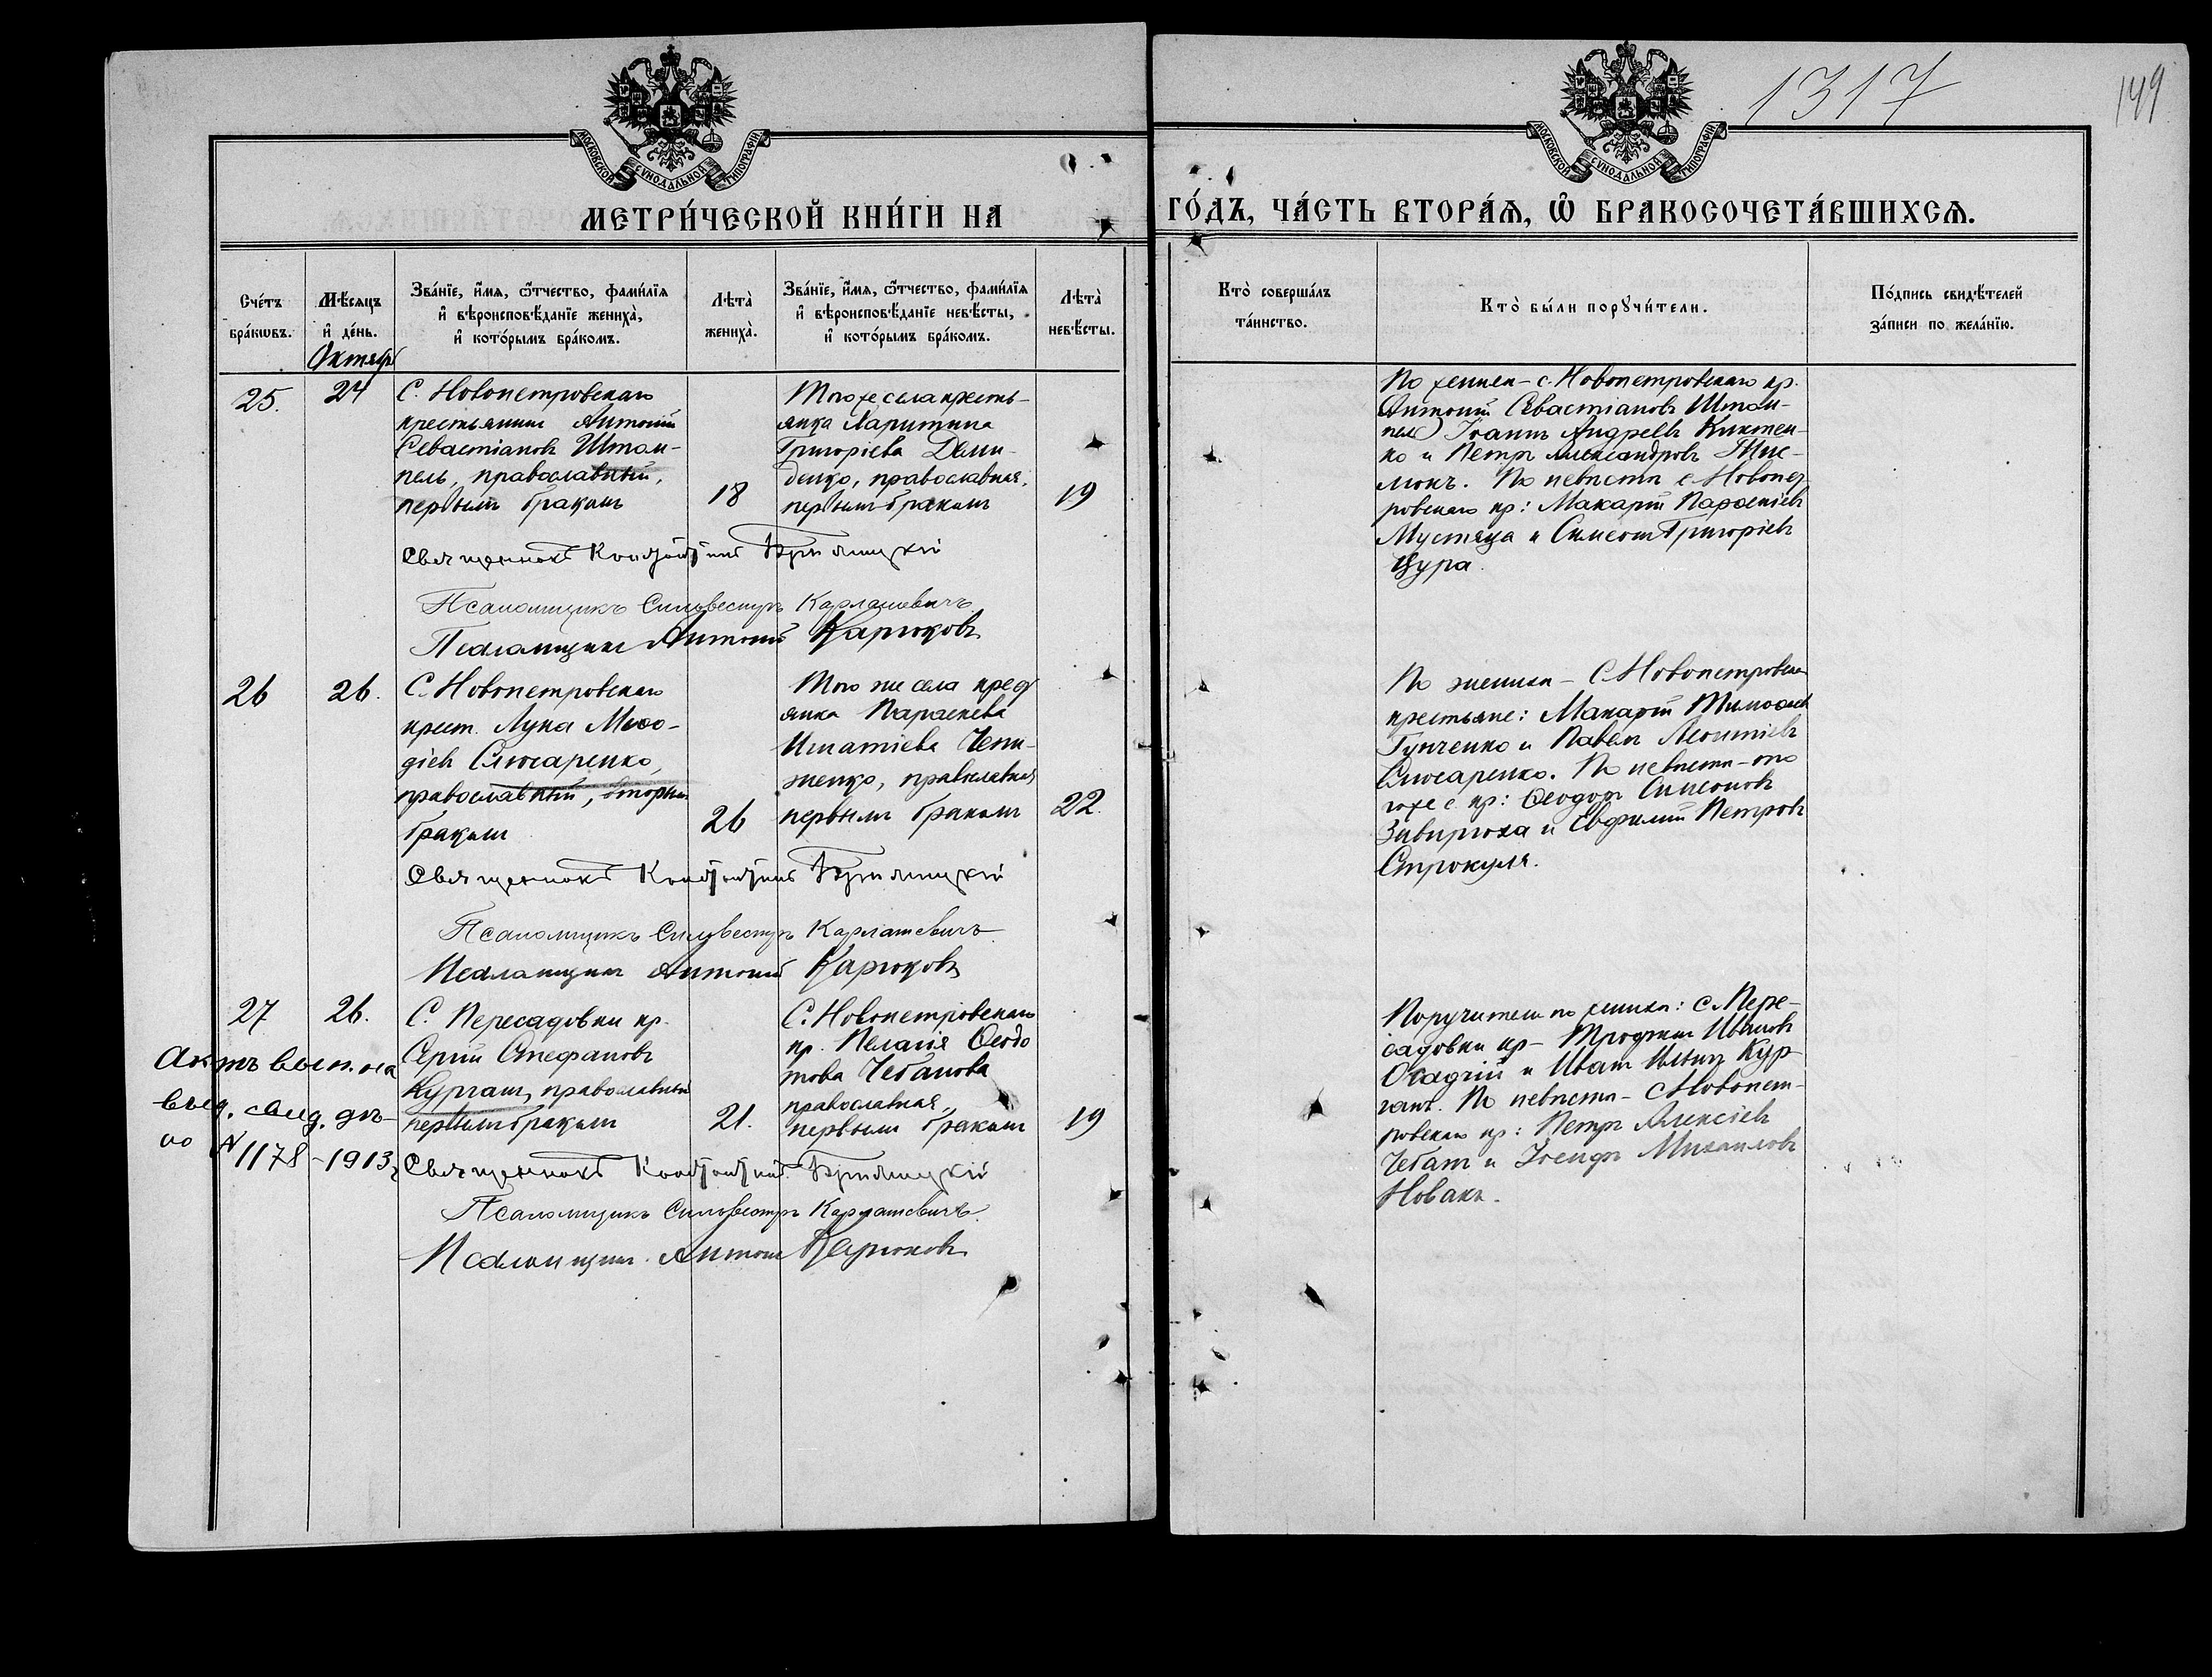 1317
149
МОСКОВСКОЙ СѴНОДАЛЬНОЙ ТИПОГРАФІИ
МОСКОВСКОЙ СѴНОДАЛЬНОЙ ТИПОГРАФІИ
МЕТРИ́ЧЕСКОЙ КНИ́ГИ НА
ГО́ДЪ, ЧА́СТЬ ВТОРА́Я, Ѡ҆ БРАКОСОЧЕТА́ВШИХСЯ.
Сче́тъ бра́кѡвъ.
Мѣ́сяцъ и҆ де́нь.
Зва́нїе, и҆́мя, ѻ҆́тчество, фами́лїя
и҆ вѣроисповѣ́данїе жениха̀,
и҆ кото́рымъ бра́комъ.
Лѣта̀ жениха̀.
Зва́нїе, и҆́мя, ѻ҆́тчество, фами́лїя
и҆ вѣроисповѣ́данїе невѣ́сты,
и҆ кото́рымъ бра́комъ.
Лѣта̀ невѣ́сты.
Кто̀ соверша́лъ та́инство.
Кто̀ бы́ли порꙋчи́тели.
По́дпись свидѣ́телей за́писи по жела́нїю.
Октябрь
25.
24
С. Новопетровскаго
крестьянинъ Антоній
Севастіановъ Штом-
пель, православный,
первымъ бракомъ
18
Того же села кресть-
янка Харитина
Григоріева Деми-
денко, православная,
первымъ бракомъ
19
По женихѣ – с. Новопетровскаго кр.
Антоній Севастіановъ Штом-
пель Іоаннъ Андреевъ Киктен-
ко и Петръ Александровъ
По невѣстѣ с. Новопет
ровскаго кр: Макарій Параскіевъ
Мустяца и Симеонъ Григоріевъ
Цура.
Священникъ Константинъ
Псаломщикъ Сильвестръ Карлашевичъ
Псаломщикъ Антоній Карюковъ
26
26.
С. Новопетровскаго
крест. Лука Меѳо-
діевъ Слюсаренко,
православный, вторымъ
бракомъ
26
Того же села крест
янка Параскева
Игнатіева Чепи-
женко, православная
первымъ бракомъ
22.
По женихѣ – С. Новопетровскаго
крестьяне: Макарій Тимоѳеевъ
Гунченко и Павелъ Леонтіевъ
Слюсаренко. По невѣстѣ – то
го же с. кр: Ѳеодоръ Симеоновъ
Завирюха и Евфимій Петровъ
Строкуля.
Священникъ Константинъ
Псаломщикъ Сильвестръ Карлашевичъ
Псаломщикъ Антоній Карюковъ
27
26.
С. Пересадовки кр.
Сергій Стефановъ
Курганъ, православный
первымъ бракомъ
21.
С. Новопетровскаго
кр. Пелагія Ѳеодо
това Чебанова
православная,
первымъ бракомъ
19
Поручители по женихѣ: с. Пере-
садовки кр – Трофимъ Ивановъ
Осадчій и Иванъ Ильинъ Кур-
ганъ. По невѣстѣ – с. Новопет-
ровскаго кр: Петръ Алексіевъ
Чебанъ и Іосифъ Михаиловъ
Новакъ.
Актъ вып. на
выд. свид. дѣ-
ло № 1178 – 1913 г
Священникъ Константинъ
Псаломщикъ Сильвестръ Карлашевичъ
Псаломщикъ Антоній Карюковъ